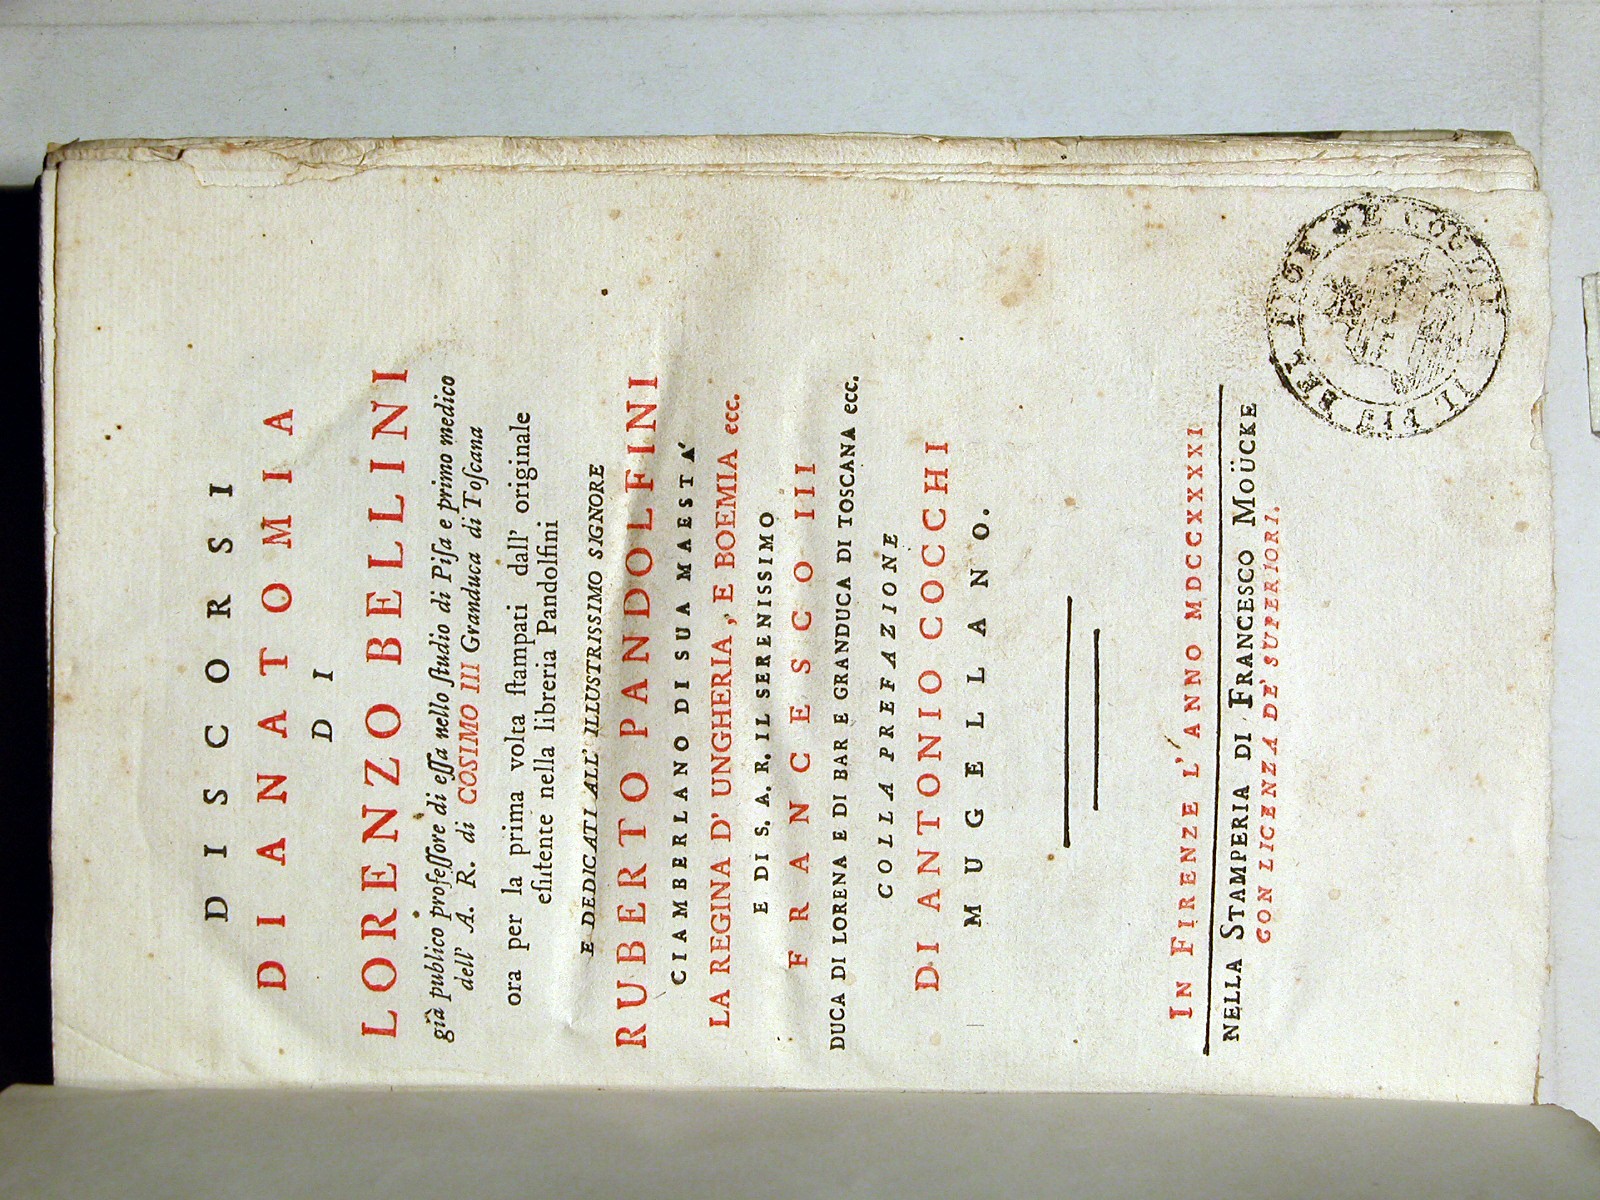 DISCORSI
DI ANATOMIA
DI
LORENZO BELLINI
già publico profeſſore di eſſa nello ſtudio di Piſa e primo medico
dell' A. R. di COSIMO III Granduca di Toſcana
ora per la prima volta ſtampati dall' originale
eſiſtente nella libreria Pandolfini
E DEDICATI ALL' ILLUSTRISSIMO SIGNORE
RUBERTO PANDOLFINI
CIAMBERLANO DI SUA MAESTA'
LA REGINA D' UNGHERIA, E BOEMIA ecc.
E DI S. A. R. IL SERENISSIMO
FRANCESCO III
DUCA DI LORENA E DI BAR E GRANDUCA DI TOSCANA ecc.
COLLA PREFAZIONE
DI ANTONIO COCCHI
MUGELLANO.
IN FIRENZE L' ANNO MDCCXXXXI
NELLA STAMPERIA DI FRANCESCO MOÜCKE
CON LICENZA DE' SUPERIORI.